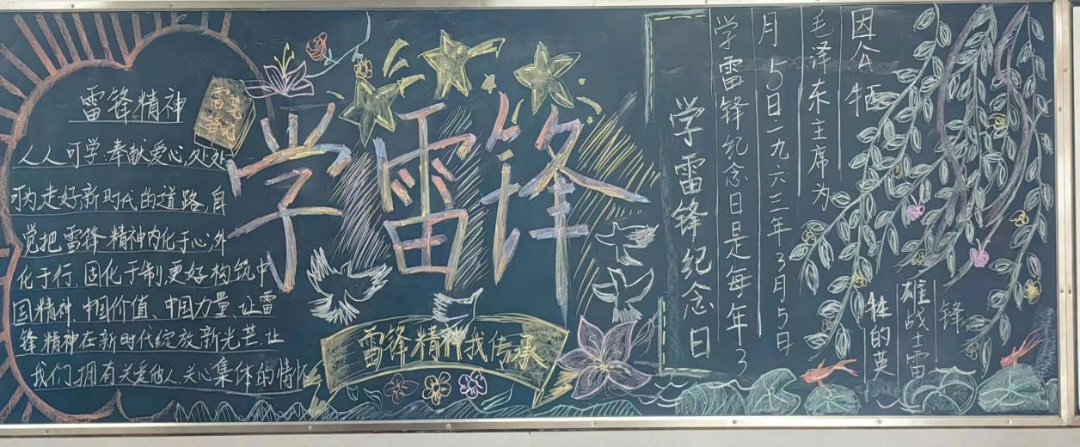 雷锋精神
人人可学.奉献爱心,处处
可为,走好新时代的道路,自
觉把雷锋精神内化于心,外
化于行 固化于制,更好构筑中
国精神、中国价值、中国力量、让雷
锋精神在新时代绽放新光芒.让
我们拥有关爱他人,关心集体的情
学雷锋
雷锋精神我传承
学雷锋纪念日
学雷锋纪念日是每年3
月5日一九六三年3月5日
毛泽东主席为
因公牺
牲的英
雄战士雷
锋